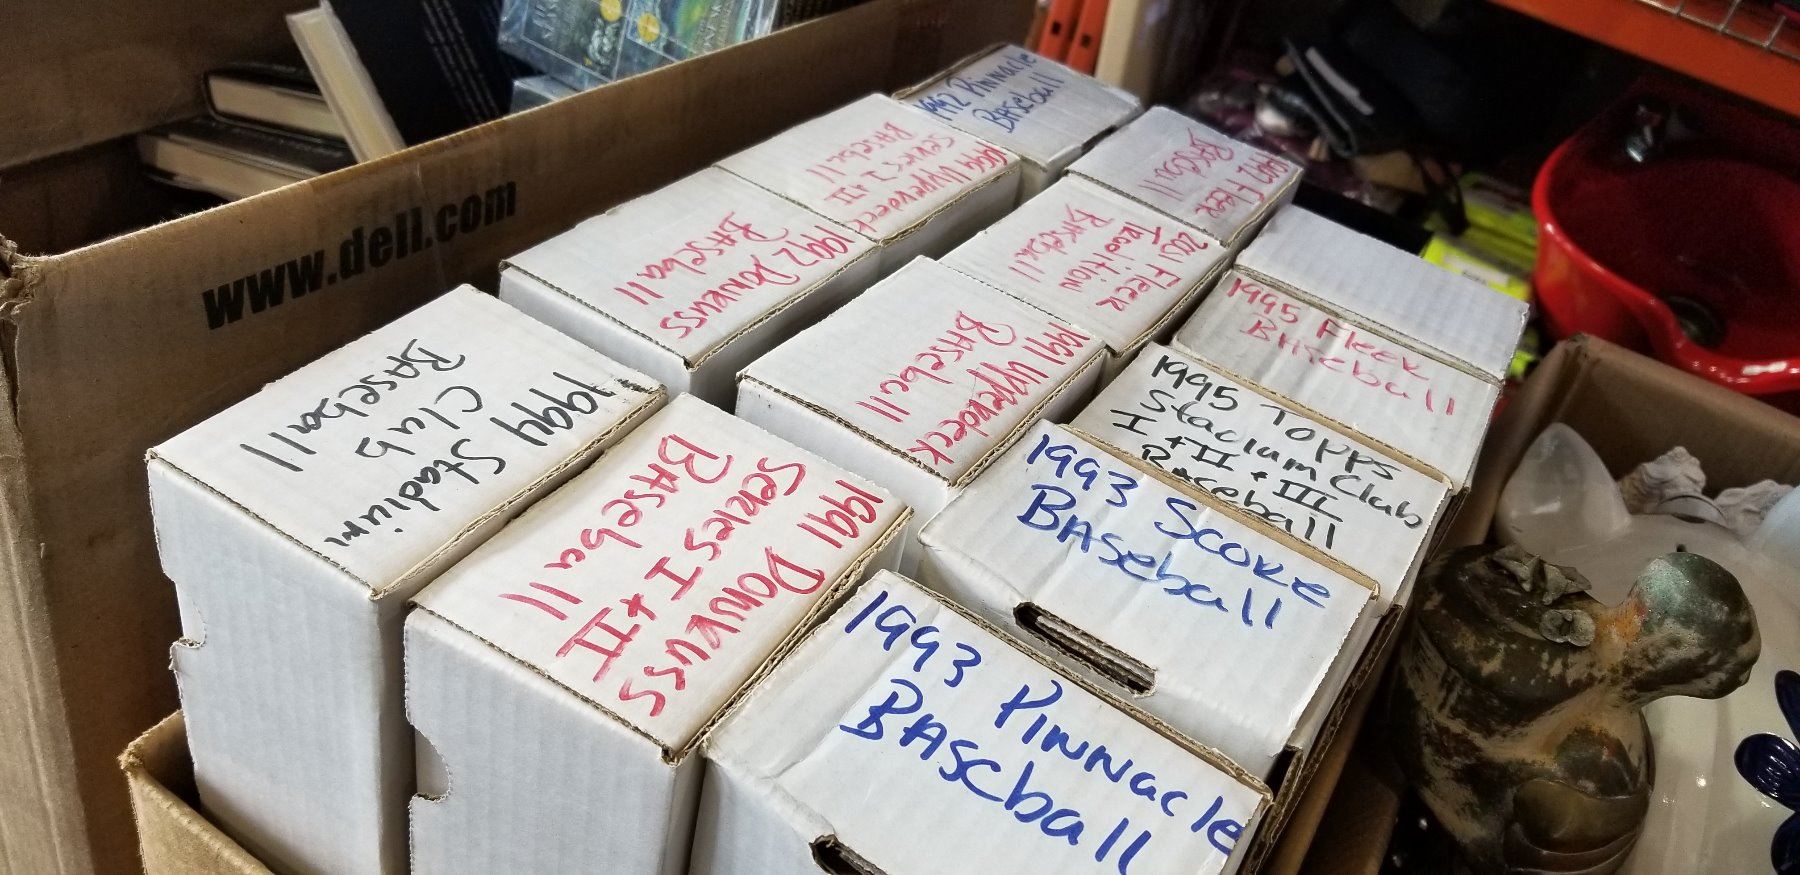 www.dell.com
1992 Pinnacle
Baseball
1994 Upperdeck
Series I + II
Baseball
1992 Fleer
Baseball
1992 Donruss
Baseball
2001 Fleer
Tradition
Baseball
1995 Fleer
Baseball
1994 Stadium
Club
Baseball
1991 Upperdeck
Baseball
1995 Topps
Stadium Club
I + II + III
Baseball
1991 Donruss
Series I + II
Baseball
1993 Score
Baseball
1993 Pinnacle
Baseball